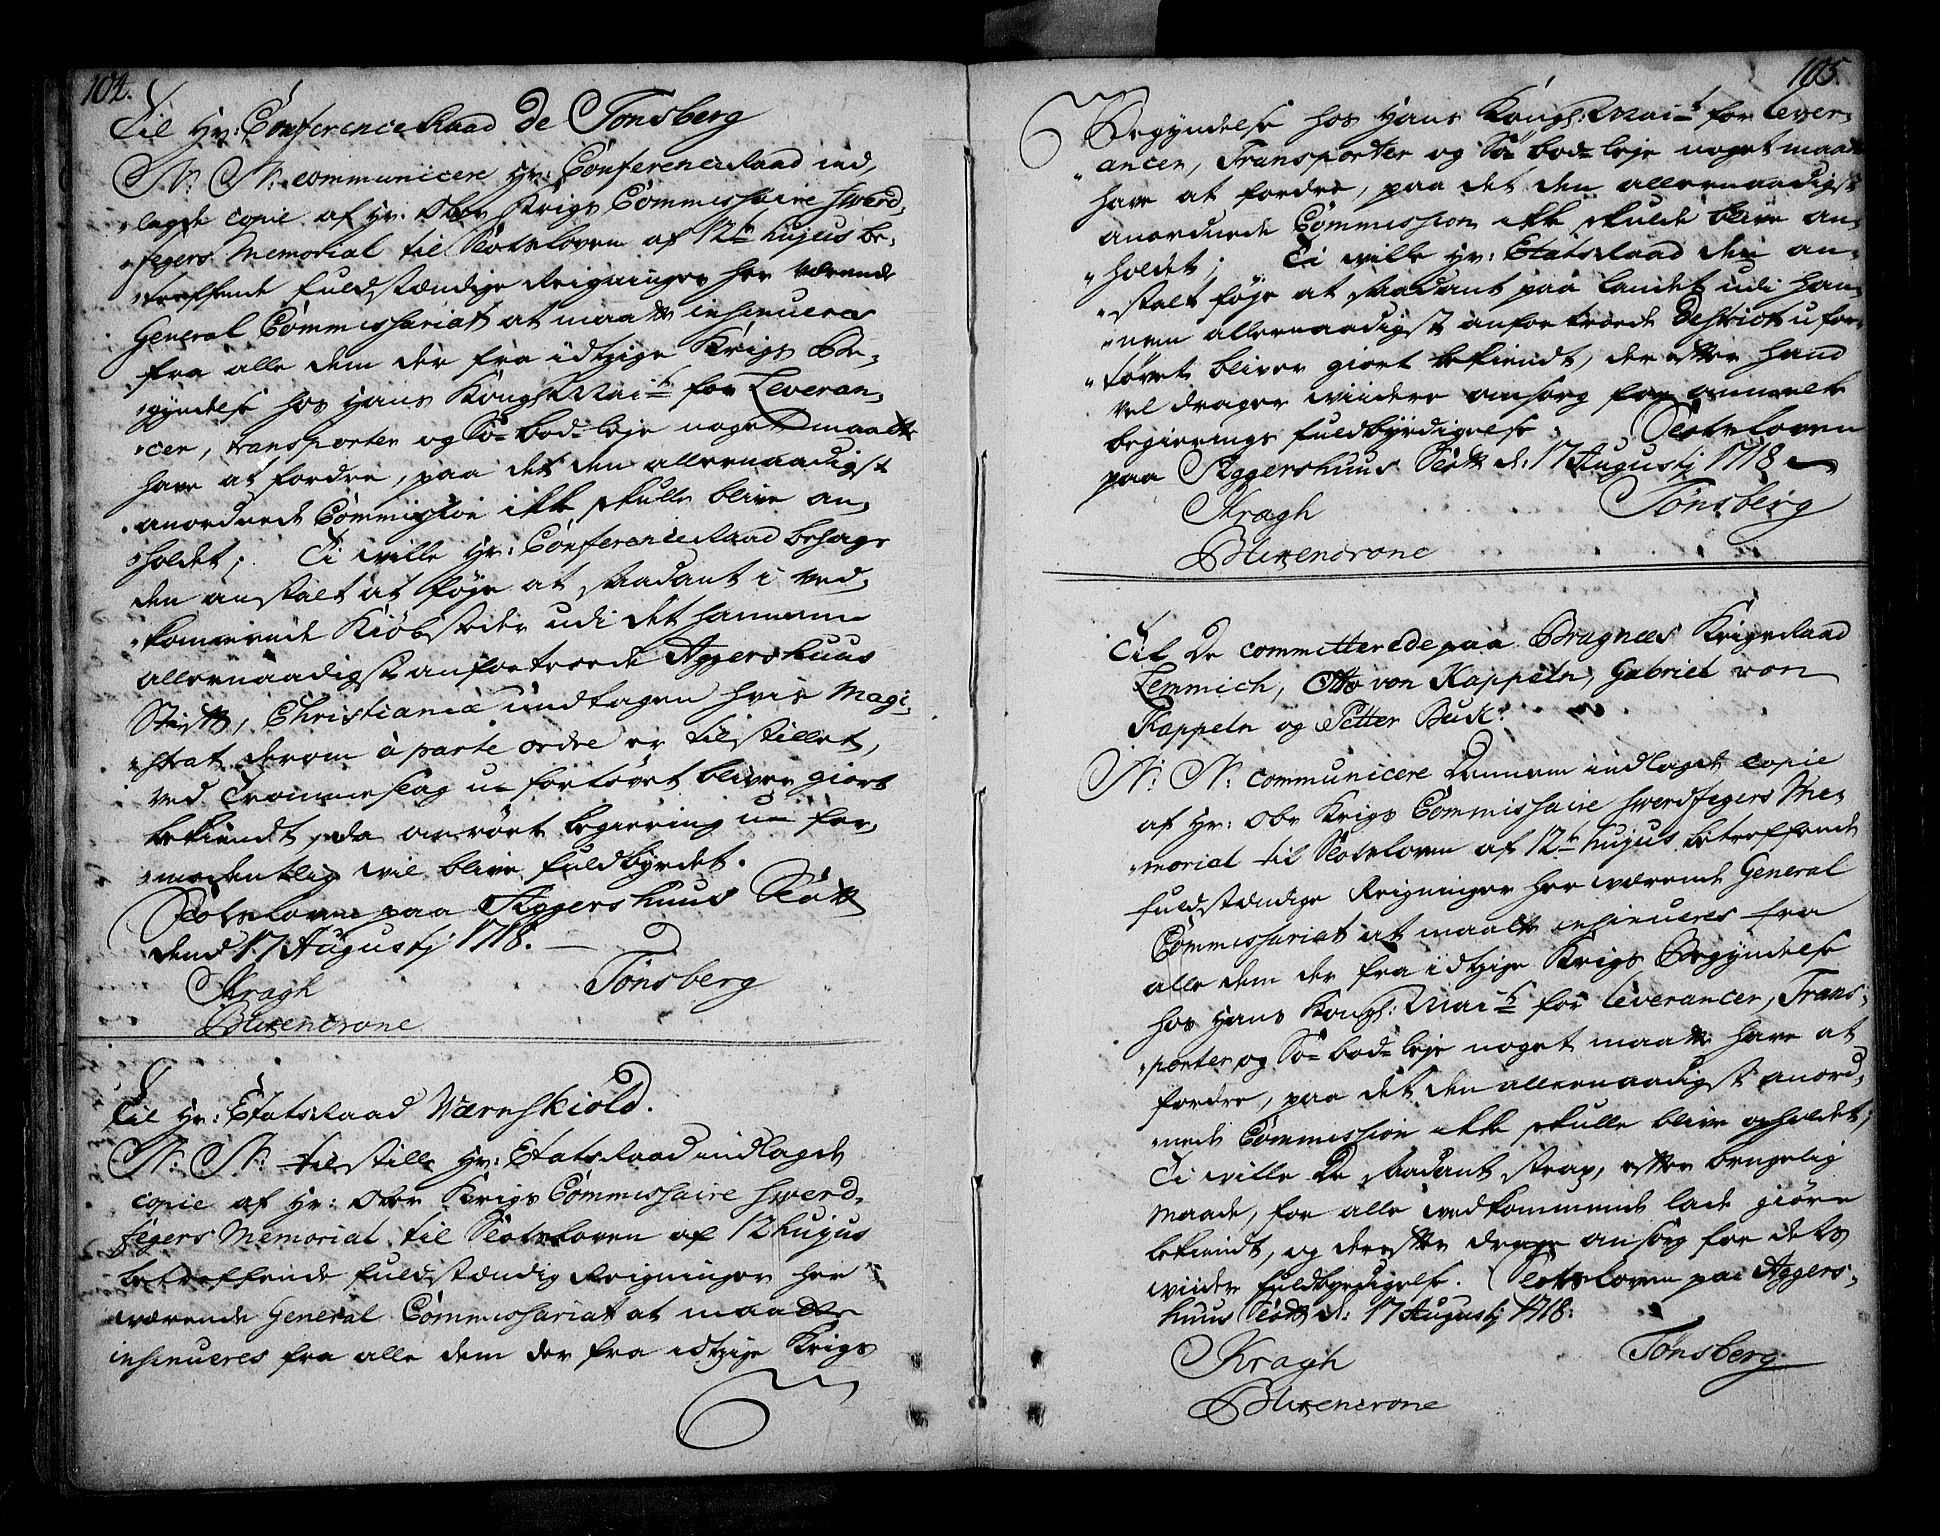 104.
Til Hr: ConferenceRaad De Tønsberg
N: N: communicere Hr: ConferenceRaad ind,
lagde copie af Hr. Obr Krigs Commissaire Swerd,
fegers Memorial til Slotsloven af 12te hujus be,
træffende fuldstændige Reigninger her værende
General Commissariat at maatte insinueres
fra alle dem der fra idtzige Krigs Be,
gyndelse hos Hans Kongl: Mait for Leveran,
cer, transporter og Sø-bod-leje noget maatte
have at fordre, paa det den allernaadigst
anordnede Commission ikke skulle blive op,
holdet; Ti wille Hr: ConferenceRaad behage
den anstalt at føje at saadant i Ved,
kommende Kiøbstæder udi det hannem
allernaadigst anfortroede Aggershuus
Stift, Christiania undtagen hvis Magi,
strat derom à parte ordre er tilstillet,
ved Trommeslag u-fortøvet bliver giort
bekiendt, da anrørte begiering u-for,
modentlig wil blive fuldbyrdet.
Slotsloven paa Aggershuus Slott
dend 17 Augustj 1718.
Kragh Tønsberg
Blixencrone
Til Hr: EtatsRaad Wærnskiold.
N: N: tilstille Hr: EtatsRaad indlagde
copie af Hr: Obr Krigs Commissaire Swerd,
fegers Memorial til Slotsloven af 12 hujus
betreffende fuldstændig Reigninger her
wærende General Commissariat at maatte
insinueres fra alle dem der fra idtzige Krigs
105.
Begyndelse hos Hans Kongl: Mait for Lever,
ancer, Transporter og Sø-bod-leje noget maatte
have at fordre, paa det den allernaadigst
anordnede Commission ikke skulde blive op,
holdet; Ti wille Hr: EtatsRaad den an,
stalt føje at saadant paa landet udi han,
nem allernaadigst anfortroede District ufor,
tøvet bliver giort bekiendt, der efter hand
vel drager viidere omsorg for anmelte
begierings fuldbyrdigelse. Slotsloven
paa Aggershuus Slott d: 17 Augustj 1718
Kragh Tønsberg
Blixencrone
Til De committerede paa Bragnees KrigsRaad
Lemmich, Otto von Kappeln, Gabriel von
Kappeln og Petter Buck.
N: N: communicere Dennem indlagde copie
af Hr: Obr Krigs Commissaire Swerdfegers Me,
morial til Slotsloven af 12te hujus betreffende
fuldstændige Reigninger her wærende General
Commissariat at maatte insinueres fra
alle dem der fra idtzige Krigs Begyndelse
hos Hans Kongl: Mait for leverancer, Trans,
porter og Sø-bod-leje noget maatte have at
fordre, paa det den allernaadigst anord,
nede Commission ikke skulle blive opholdet;
Ti wille De saadant strax, efter brugelig
Maade, for alle vedkommende lade giøre
bekiendt, og derefter drage omsorg for dets
viider fuldbyrdigelse. Slotsloven paa Aggers,
huus Slott d: 17 Augustj 1718.
Kragh Tønsberg
Blixencrone